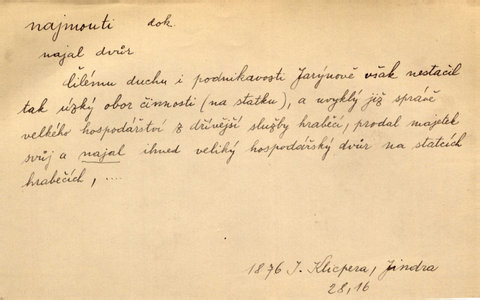 najmouti dok.
najal dvůr
čilému duchu i podnikavosti Jarýnově však nestačil
tak úzký obor činnosti (na statku), a uvyklý již správě
velkého hospodářství z dřívější služby hraběcí, prodal majetek
svůj a najal ihned veliký hospodářský dvůr na statcích
hraběcích, ....
1876 I. Klicpera, Jindra
28, 16